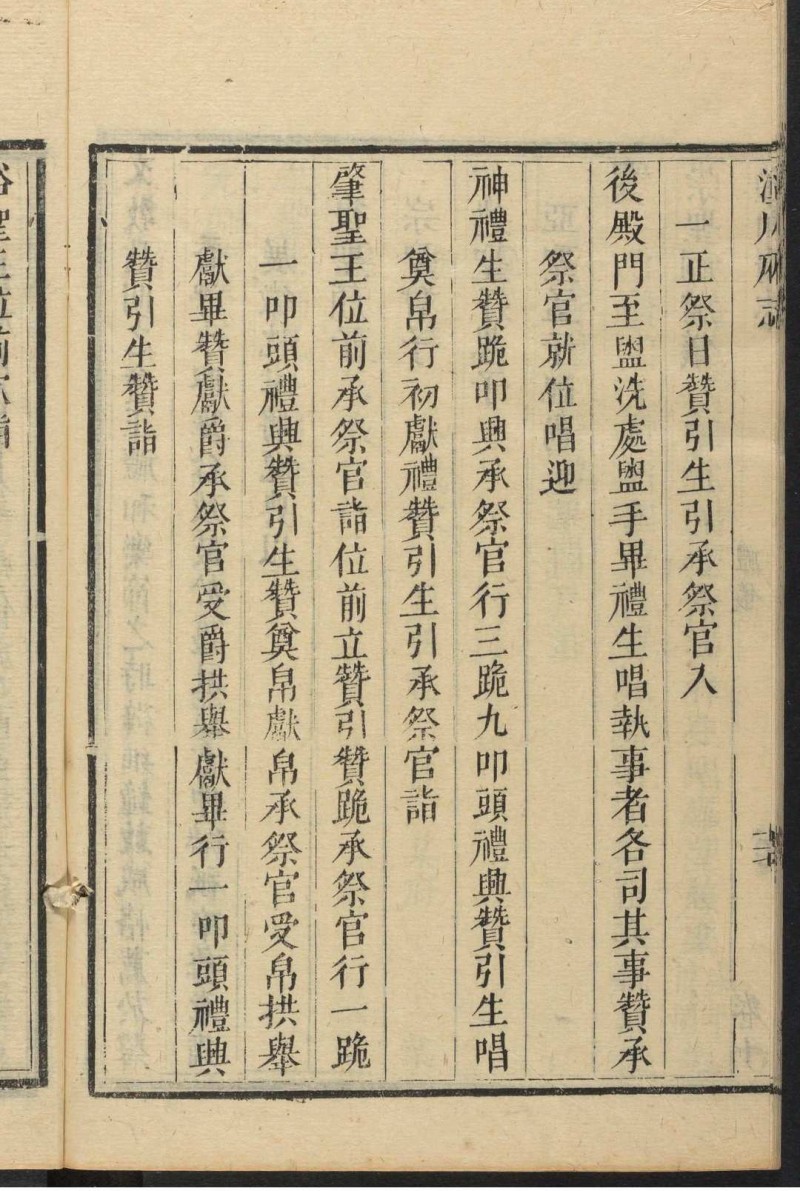 一正祭日贊引生引承祭官入
後殿門至盥洗處盥手畢禮生唱執事者各司其事贊承
祭官就位唱迎
神禮生贊跪叩興承祭官行三跪九叩頭禮興贊引生唱
奠帛行初獻禮贊引生引承祭官詣
肇聖王位前承祭官詣位前立贊引贊跪承祭官行一跪
一叩頭禮興贊引生贊奠帛獻帛承祭官受帛拱舉
獻畢贊獻爵承祭官受爵拱舉獻畢行一叩頭禮興
贊引生贊詣